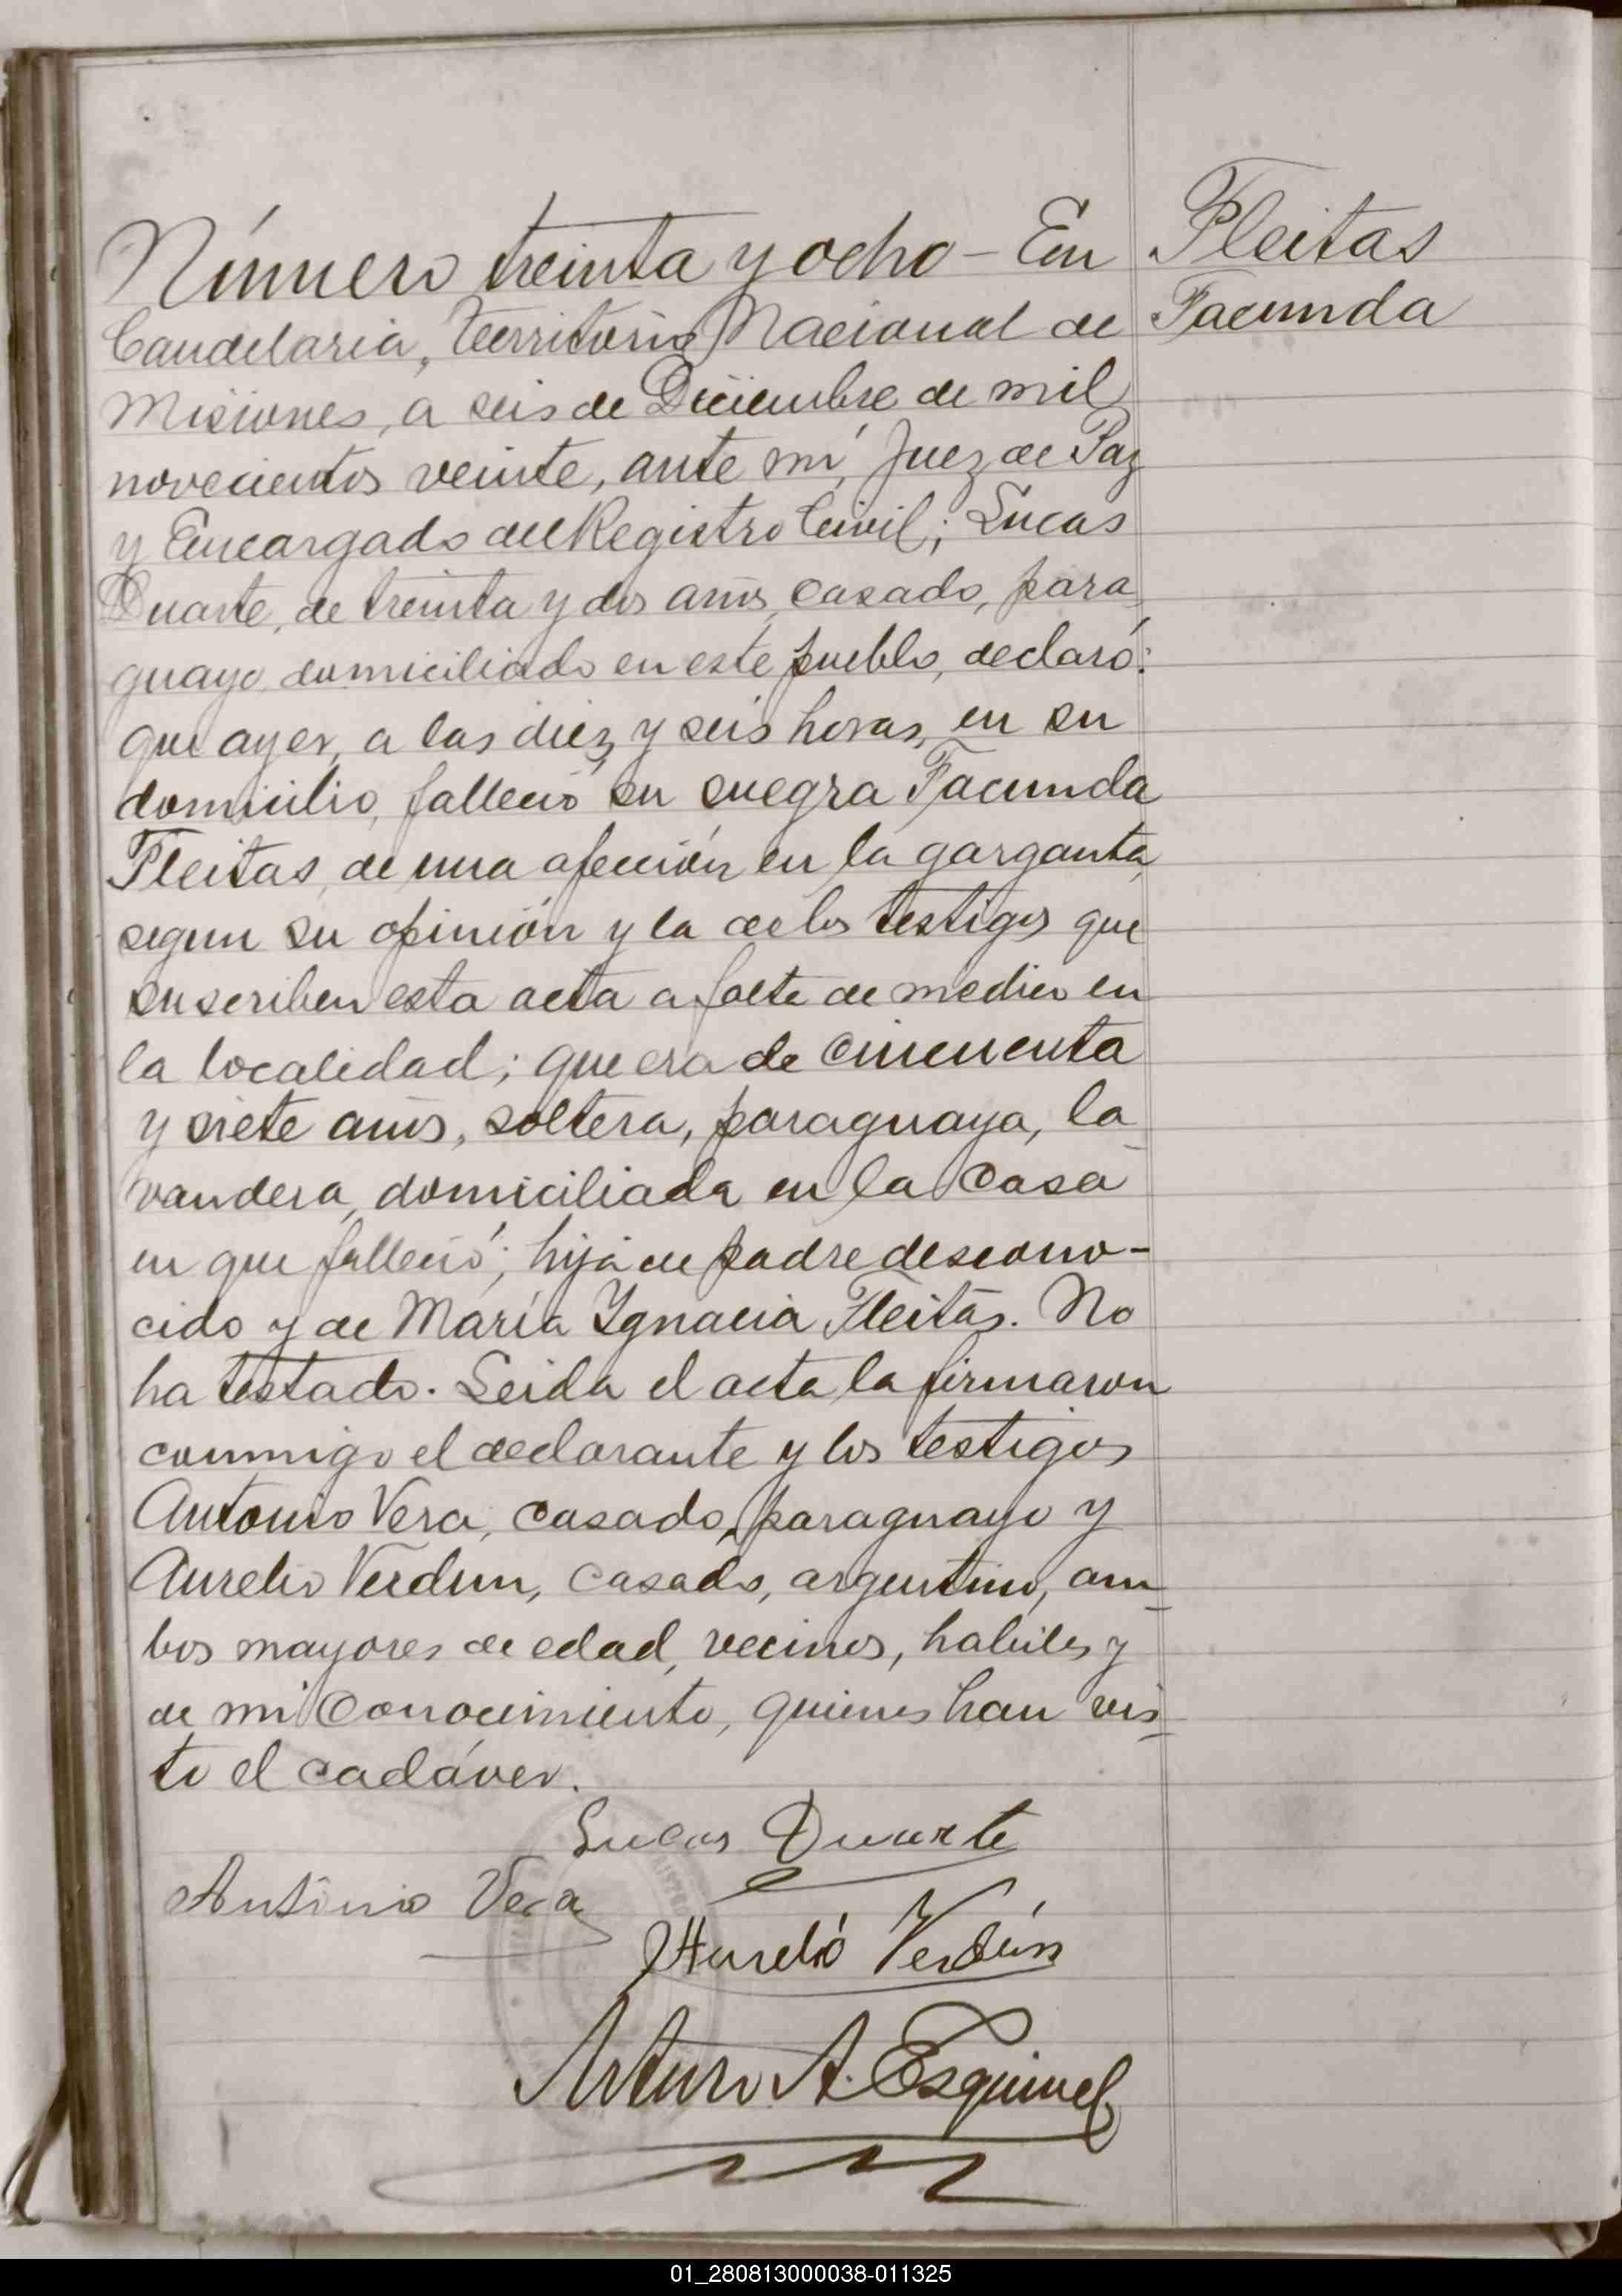 Número treinta y ocho - En
Candelaria, Territorio Nacional de
Misiones, a seis de Diciembre de mil
novecientos veinte, ante mí, Juez de Paz
y Encargado del Registro Civil; Lucas
Duarte, de treinta y dos años, casado, para
guayo, domiciliado en este pueblo, declaró:
que ayer, a las diez y seis horas, en su
domicilio, falleció su suegra Facunda
Fleitas, de una afección en la garganta,
segun su opinión y la de los testigos que
suscriben esta acta a falta de medico en
la localidad; que era de cincuenta
y siete años, soltera, paraguaya, la
vandera, domiciliada en la casa
en que falleció; hija de padre descono-
cido y de María Ygnacia Fleitas. No
ha testado. Leida el acta la firmaron
conmigo el declarante y los testigos
Antonio Vera, casado, paraguayo y
Aurelio Verdun, casado, argentino, am
bos mayores de edad, vecinos, habiles y
de mi conocimiento, quienes han vis
to el cadáver.
Fleitas
Facunda
Lucas Duarte
Antonio Vera
Aurelio Verdún
Arturo A. Esquivel
01_280813000038-011325